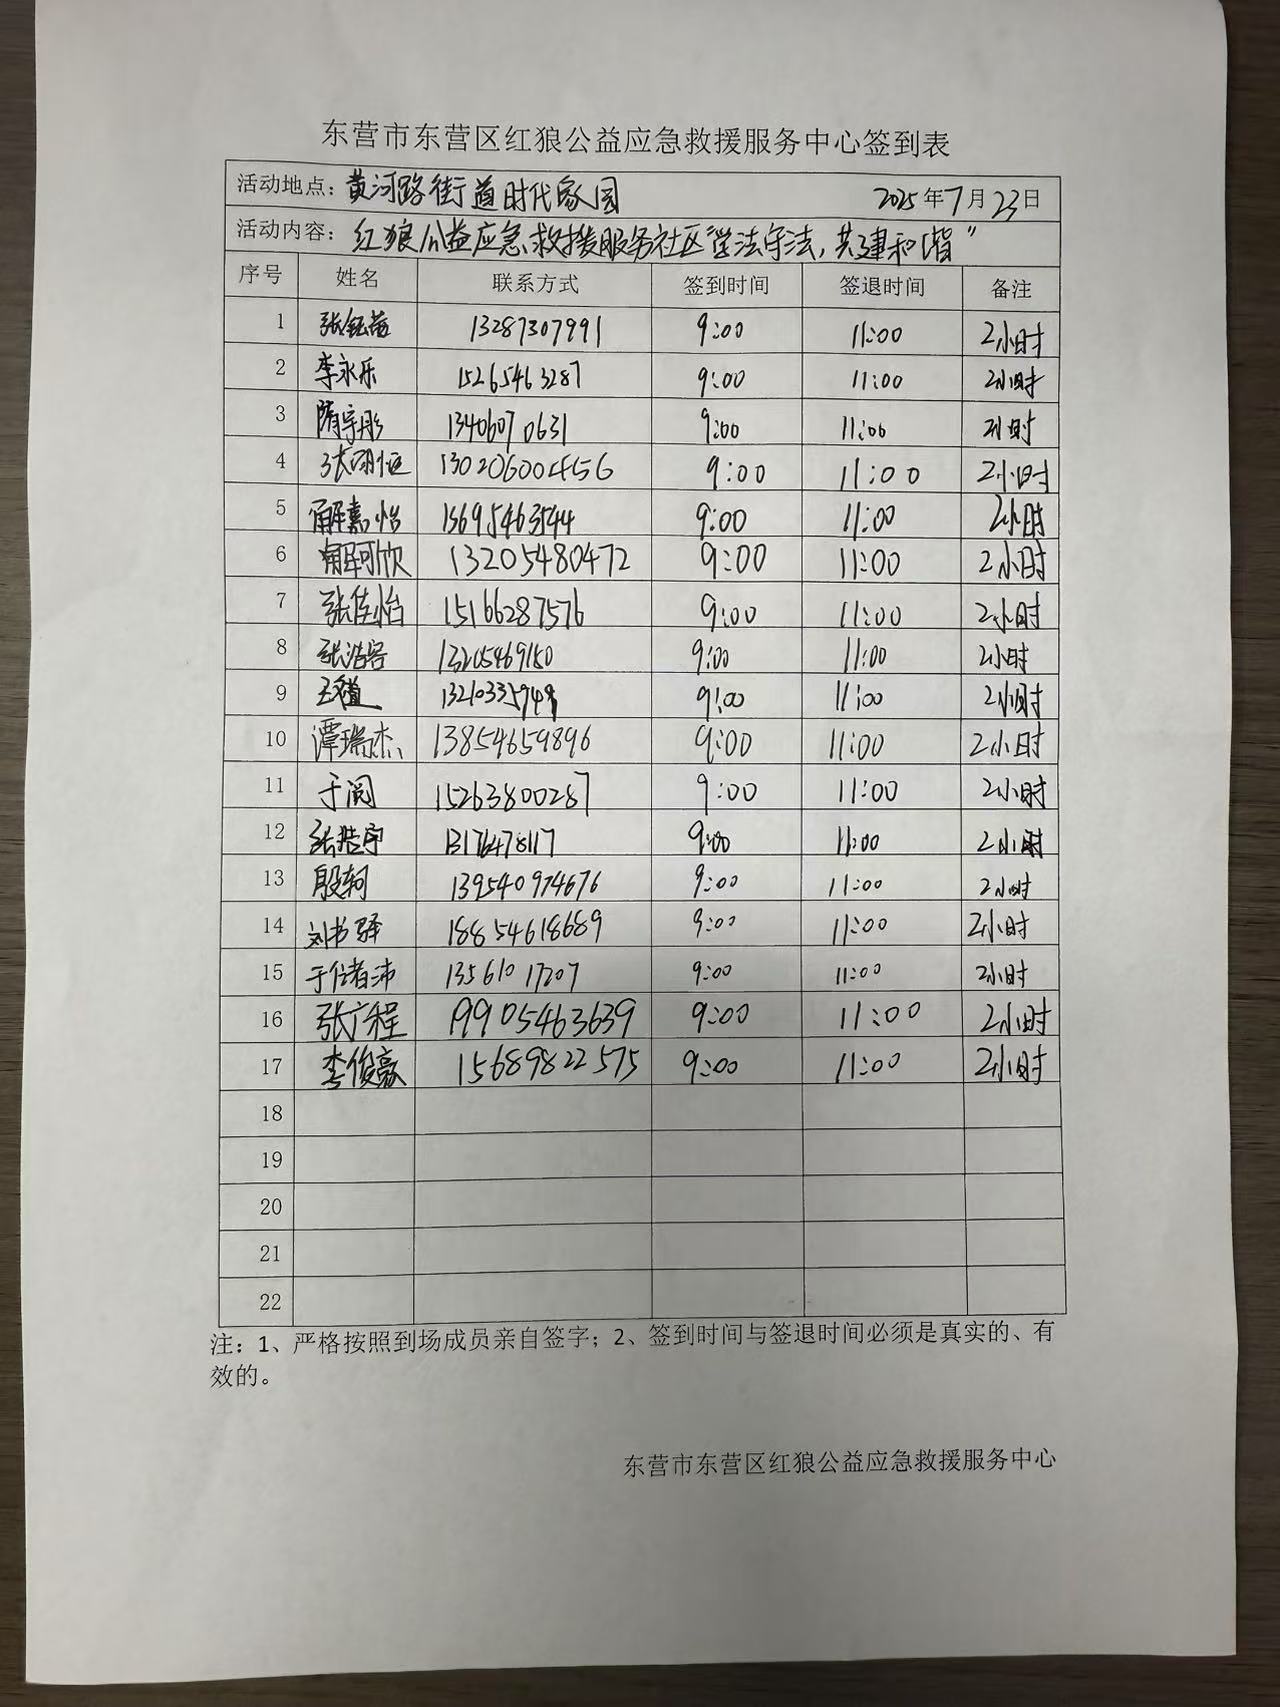 东营市东营区红狼公益应急救援服务中心签到表
活动地点：黄河路街道时代家园 2025年7月23日
活动内容：红狼公益应急救援服务社区“学法守法，共建和谐”
序号 姓名 联系方式 签到时间 签退时间 备注
1 张钰益 13287307991 9:00 11:00 2小时
2 李永乐 15265463287 9:00 11:00 2小时
3 隋宇彤 13406070631 9:00 11:00 2小时
4 张翊恒 13020600456 9:00 11:00 2小时
5 解嘉怡 15695463544 9:00 11:00 2小时
6 解可欣 13205480472 9:00 11:00 2小时
7 张佳怡 15166287576 9:00 11:00 2小时
8 张浩容 13205469150 9:00 11:00 2小时
9 13210335949 9:00 11:00 2小时
10 谭瑞杰 13854659896 9:00 11:00 2小时
11 于阅 15263800287 9:00 11:00 2小时
12 张皓宇 13176478117 9:00 11:00 2小时
13 殷轲 139540974676 9:00 11:00 2小时
14 刘书驿 18854618689 9:00 11:00 2小时
15 13561017207 9:00 11:00 2小时
16 张广程 19905463639 9:00 11:00 2小时
17 李俊毅 15689822575 9:00 11:00 2小时
18
19
20
21
22
注：1、严格按照到场成员亲自签字；2、签到时间与签退时间必须是真实的、有
效的。
东营市东营区红狼公益应急救援服务中心